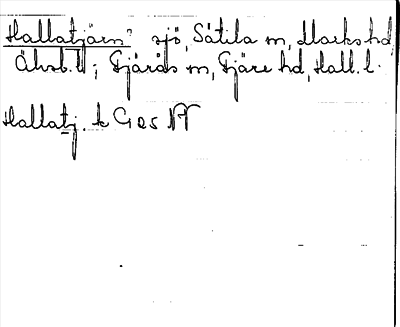 Hallatjärn? sjö, Sätila sn, Marks hd
Älvsb. l; Fjärås sn, Fjäre hd, Hall. l.
Hallatj. k G 25 NV